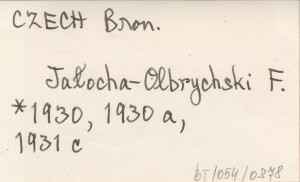 CZECH Bron.
Jałocha-Olbrychski F.
*1930, 1930 a,
1931 c
bT/054/0878